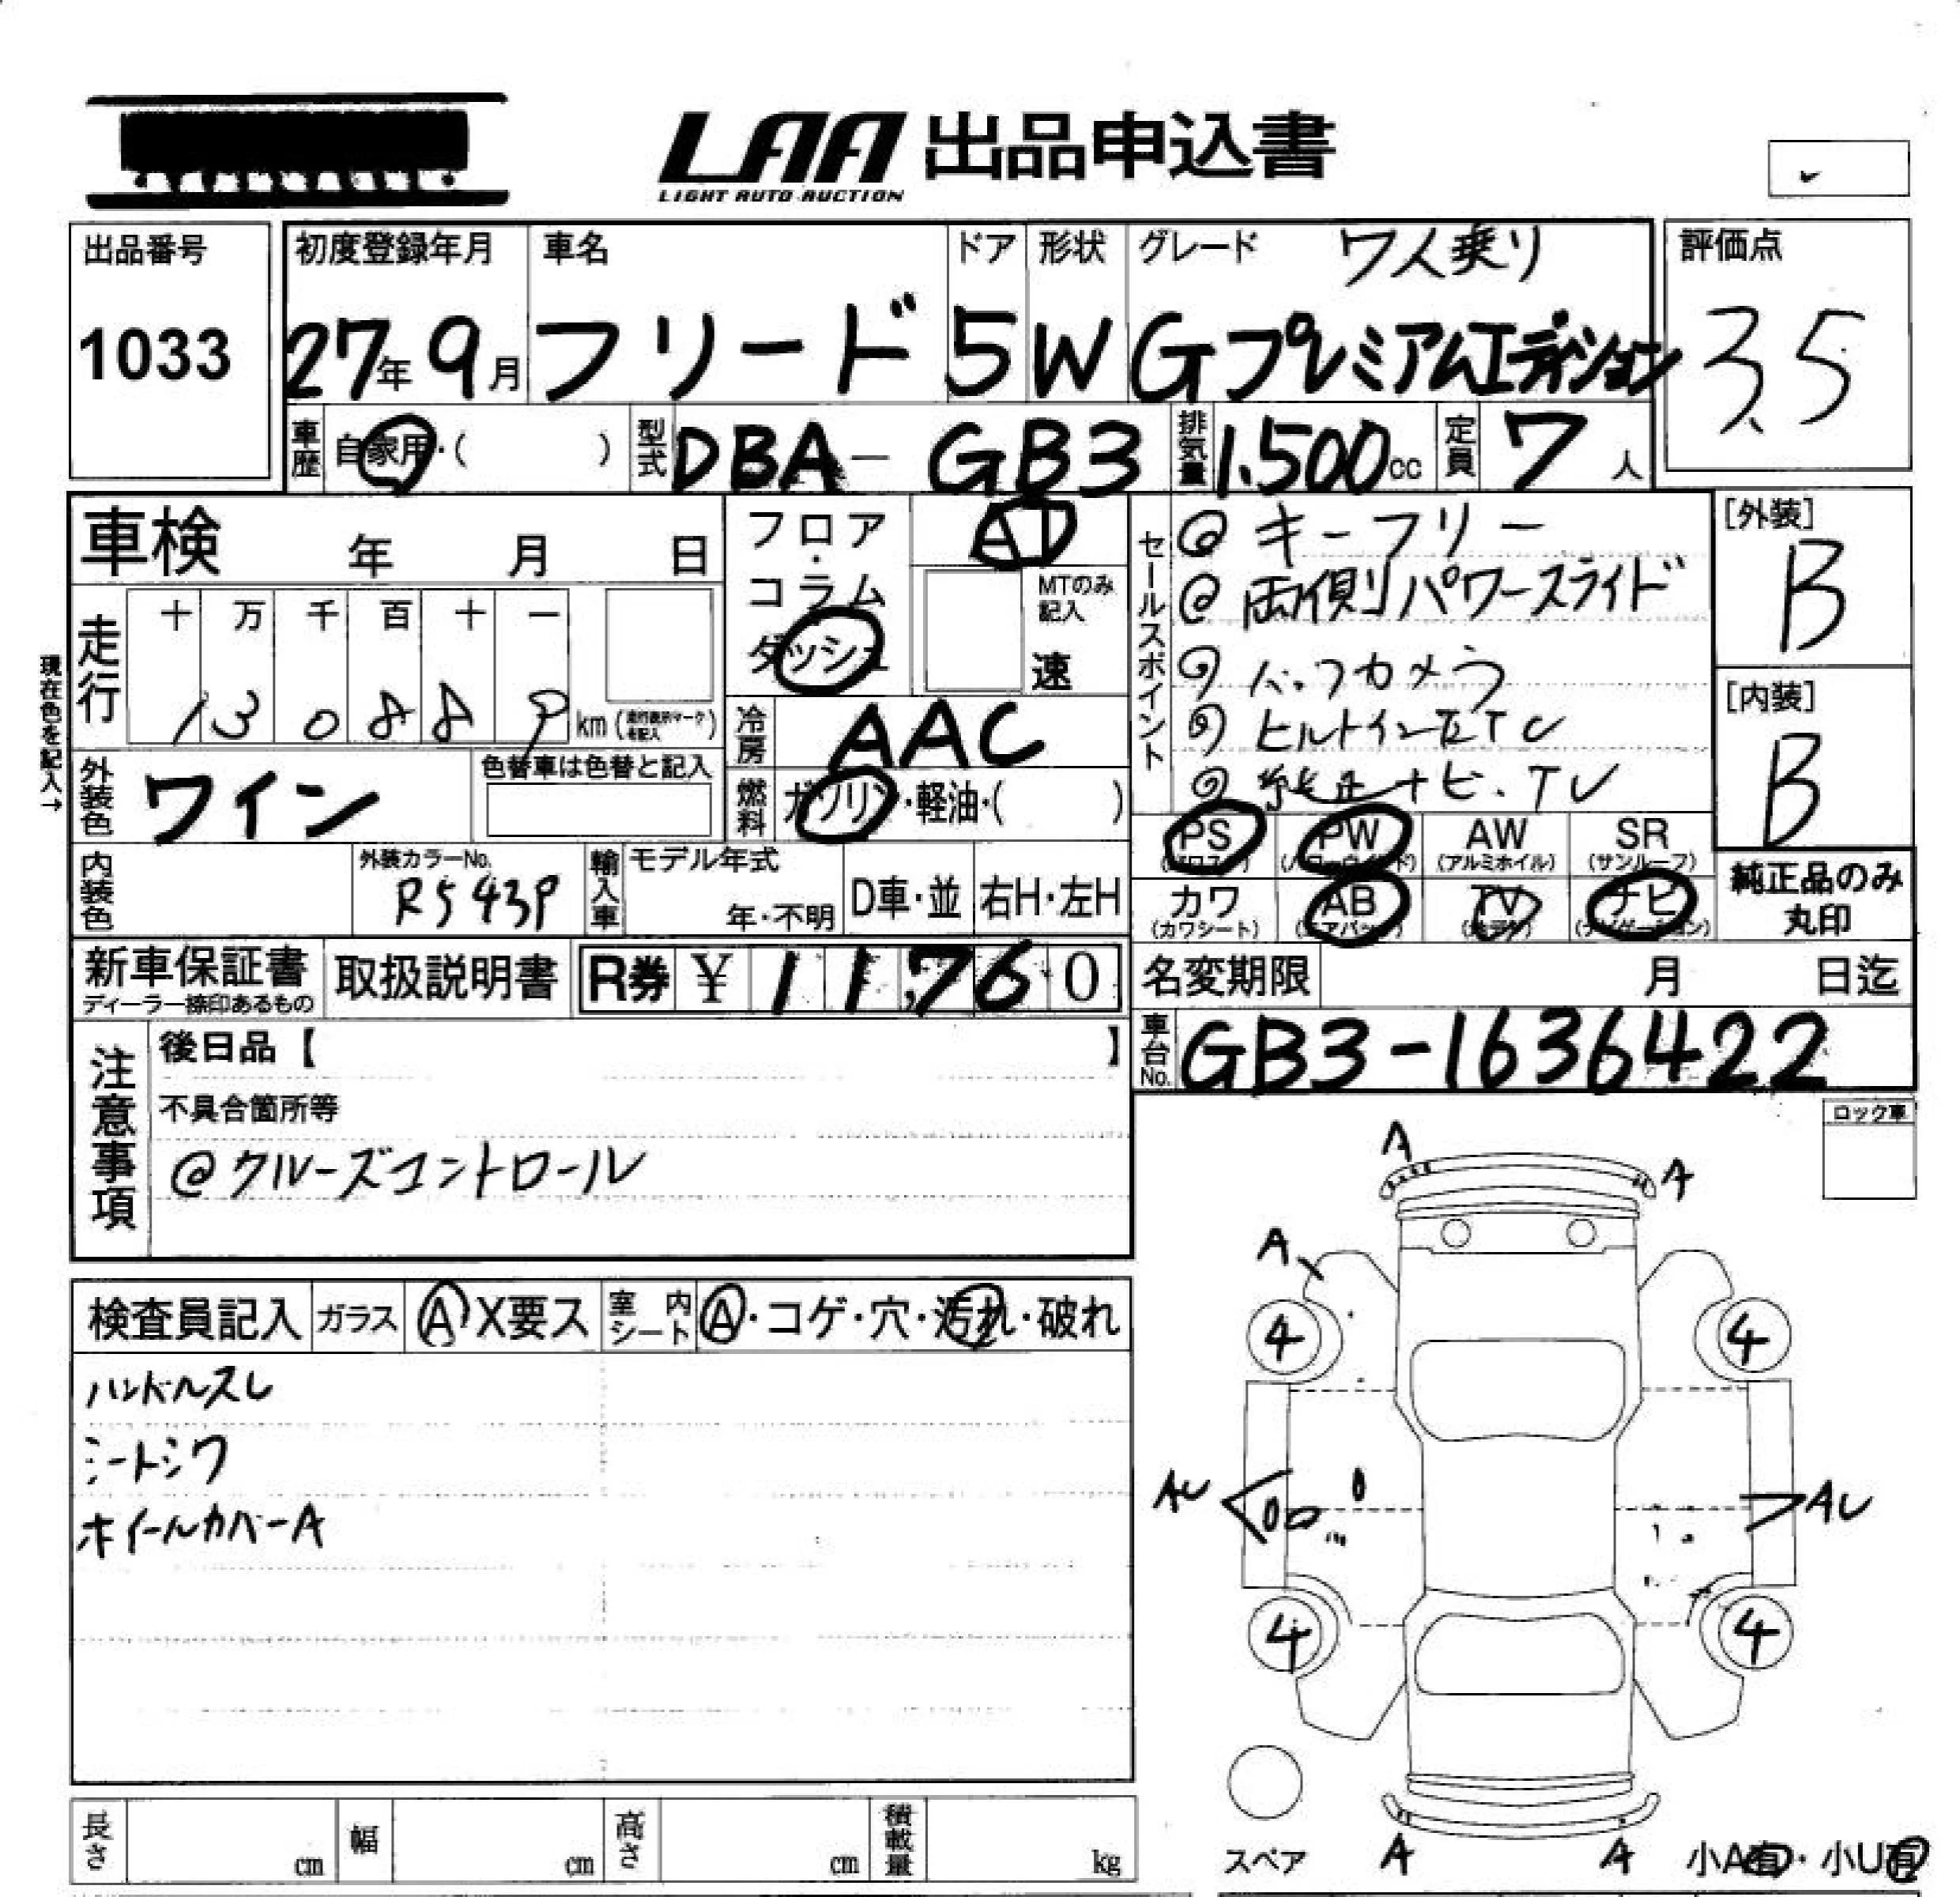 LAA 出品申込書
LIGHT AUTO AUCTION
出品番号
1033
初度登録年月
27年 9月
車名
フリード
ドア
5
形状
W
グレード 7人乗り
Gプレミアムエディション
評価点
3.5
車歴 自家用・( )
型式 DBA - GB3
排気量 1.500cc
定員 7人
車検 年 月 日
フロア・コラム
ダッシュ
AT
MTのみ記入
速
現在色を記入→
走行
十 万 千 百 十 一
1 3 0 8 8 9 km
冷房 AAC
燃料 ガソリン・軽油・( )
外装色 ワイン
色替車は色替と記入
内装色
外装カラーNo.
R543P
輸入車 モデル年式
年・不明
D車・並
右H・左H
セールスポイント
@ キーフリー
@ 両側パワースライド
@ バックカメラ
@ ビルトインETC
@ 純正ナビ.TV
[外装]
B
[内装]
B
PS (パワステ)
PW (パワーウインド)
AW (アルミホイル)
SR (サンルーフ)
カワ (カワシート)
AB (エアバッグ)
TV
ナビ (ナビゲーション)
純正品のみ丸印
新車保証書
ディーラー捺印あるもの
取扱説明書
R券 ¥ 11,760
名変期限 月 日迄
車台No. GB3-1636422
注意事項
後日品【 】
不具合箇所等
@クルーズコントロール
ロック車
検査員記入 ガラス A X要ス
室内シート A・コゲ・穴・汚れ・破れ
ハンドルスレ
シートシワ
ホイールカバーA
A
A
A
4
4
AU
AU
4
4
スペア
A
A
小A有・小U有
長さ cm
幅 cm
高さ cm
積載量 kg